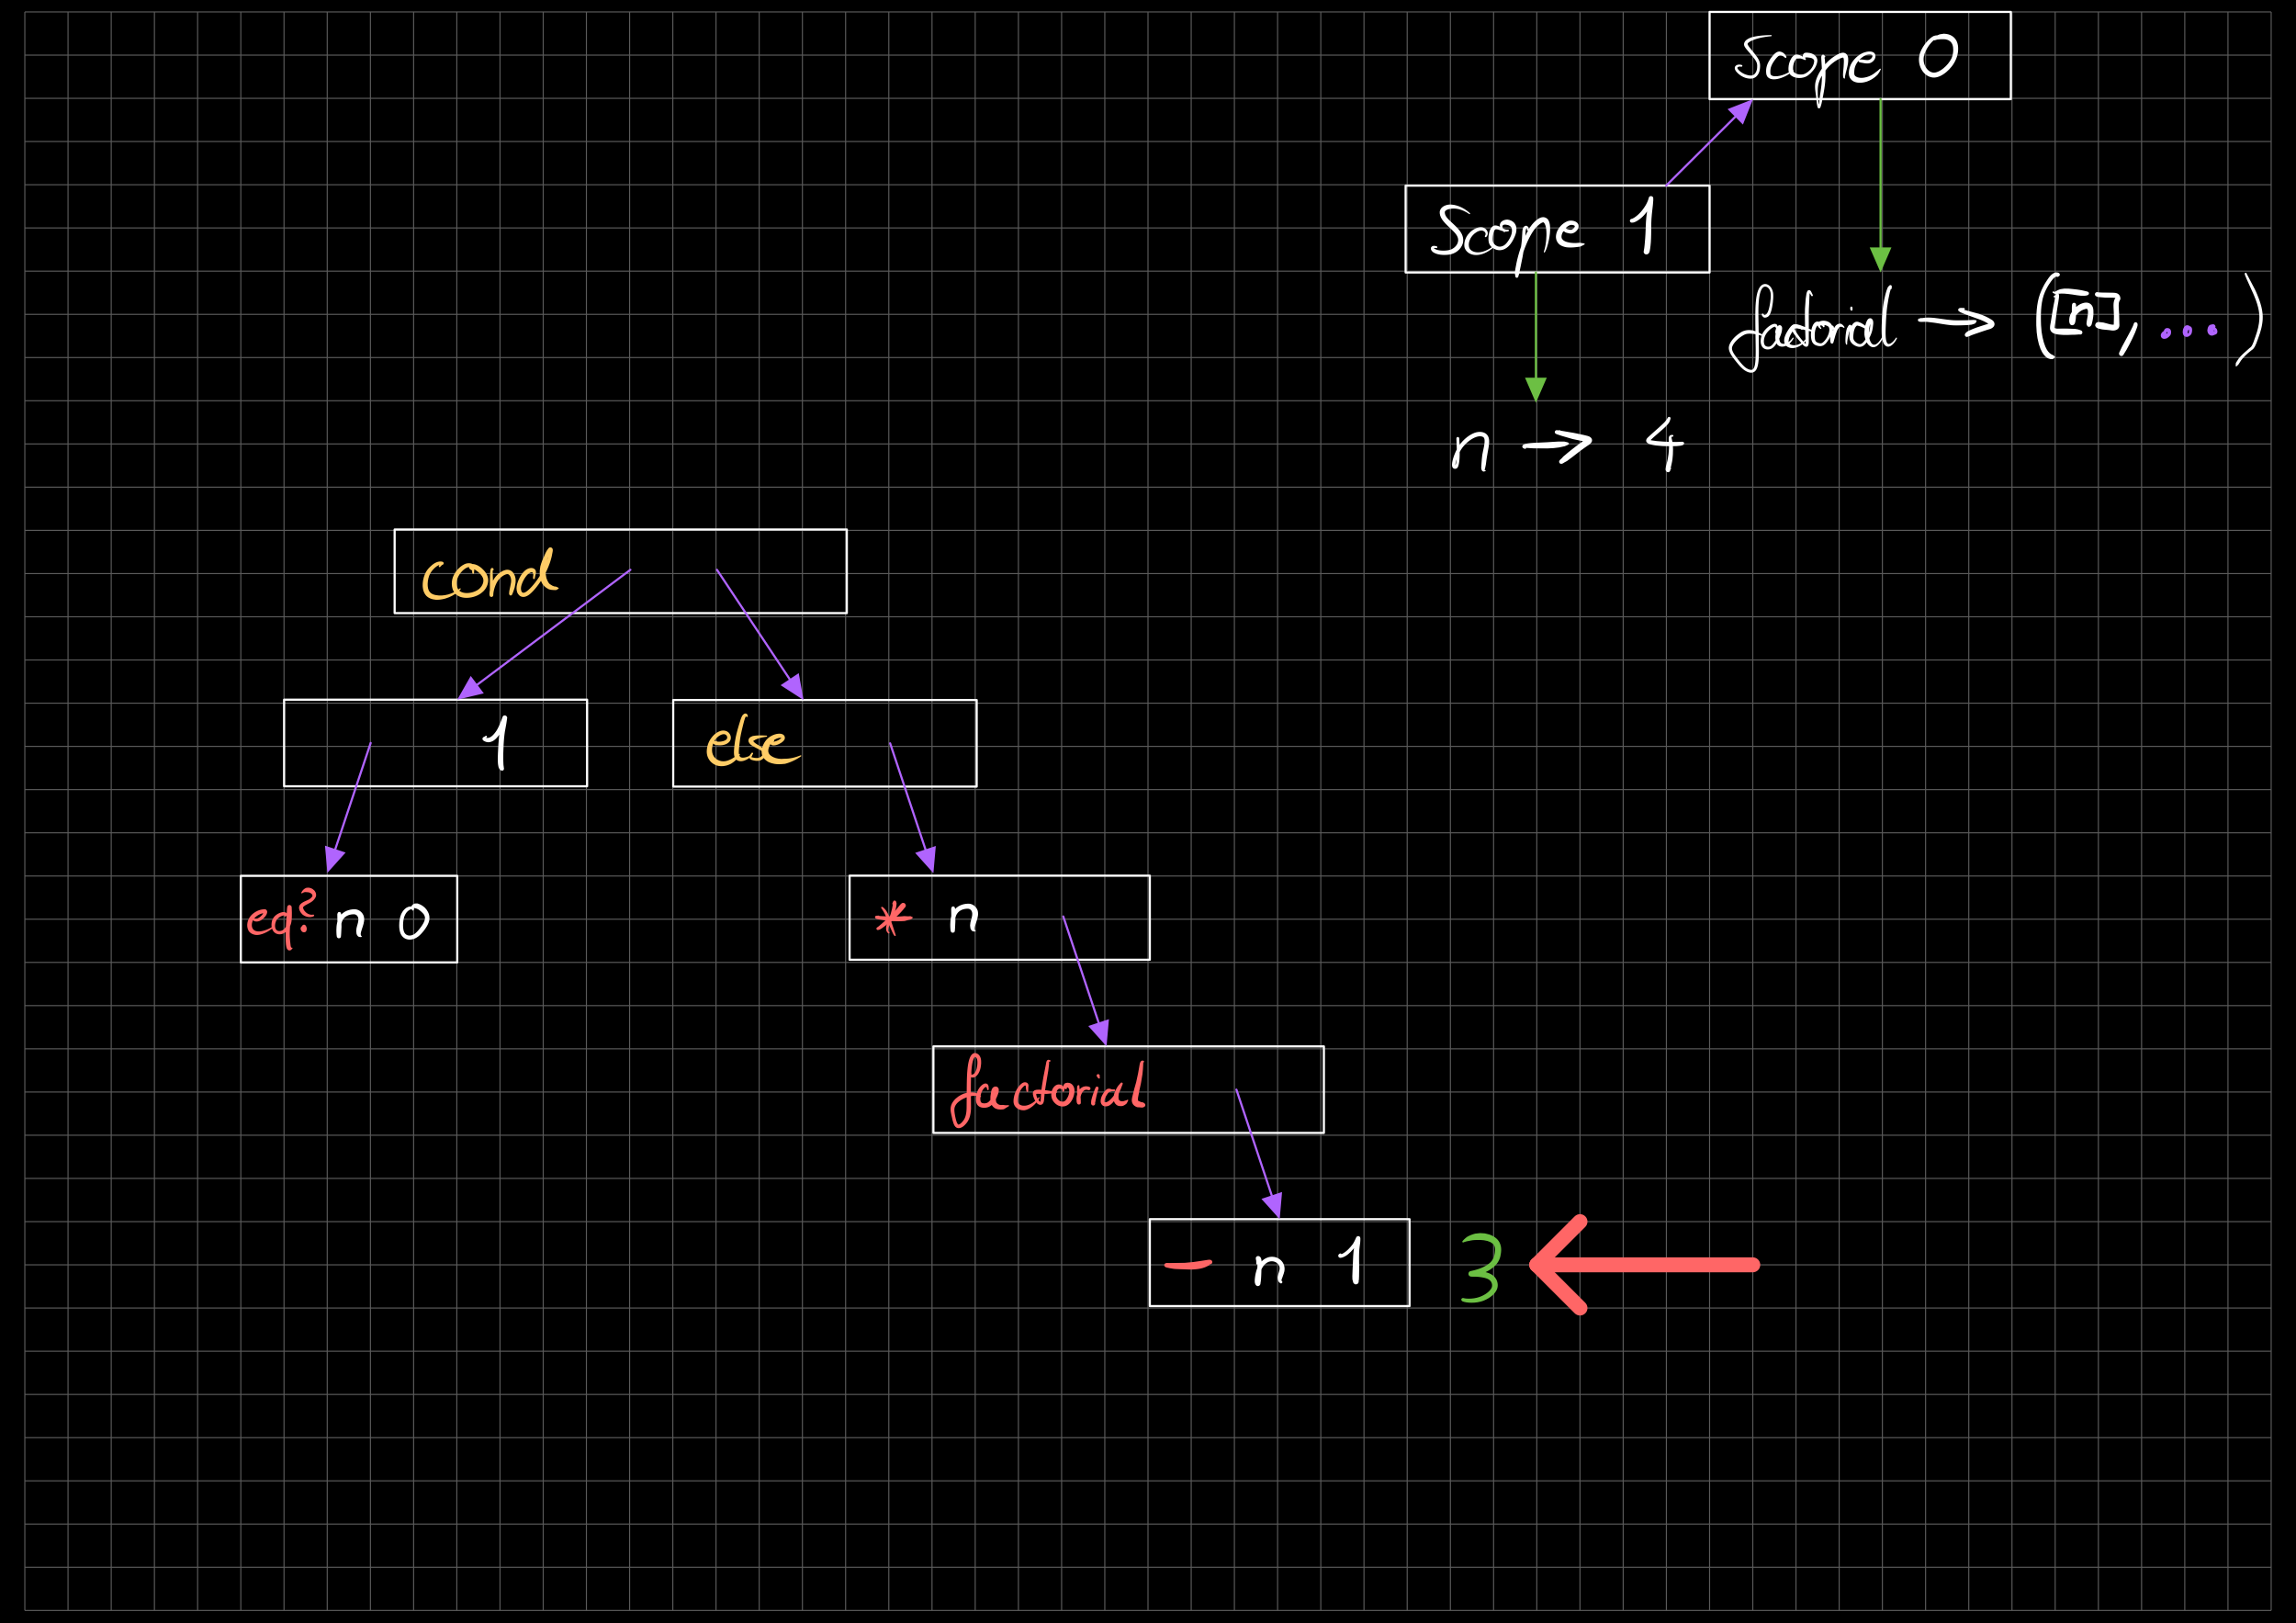 Scope 0
Scope 1
factorial → ([n], ...)
n → 4
cond
1
else
eq? n 0
* n
factorial
- n 1
3